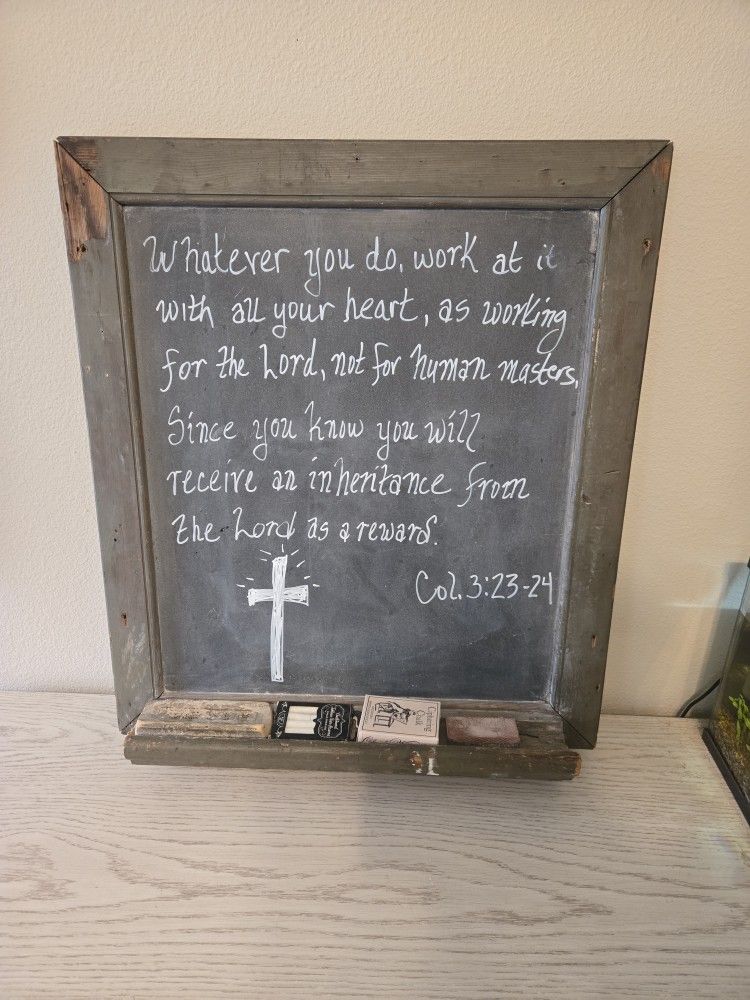 Whatever you do, work at it
with all your heart, as working
for the Lord, not for human masters,
Since you know you will
receive an inheritance from
the Lord as a reward.
Col. 3:23-24